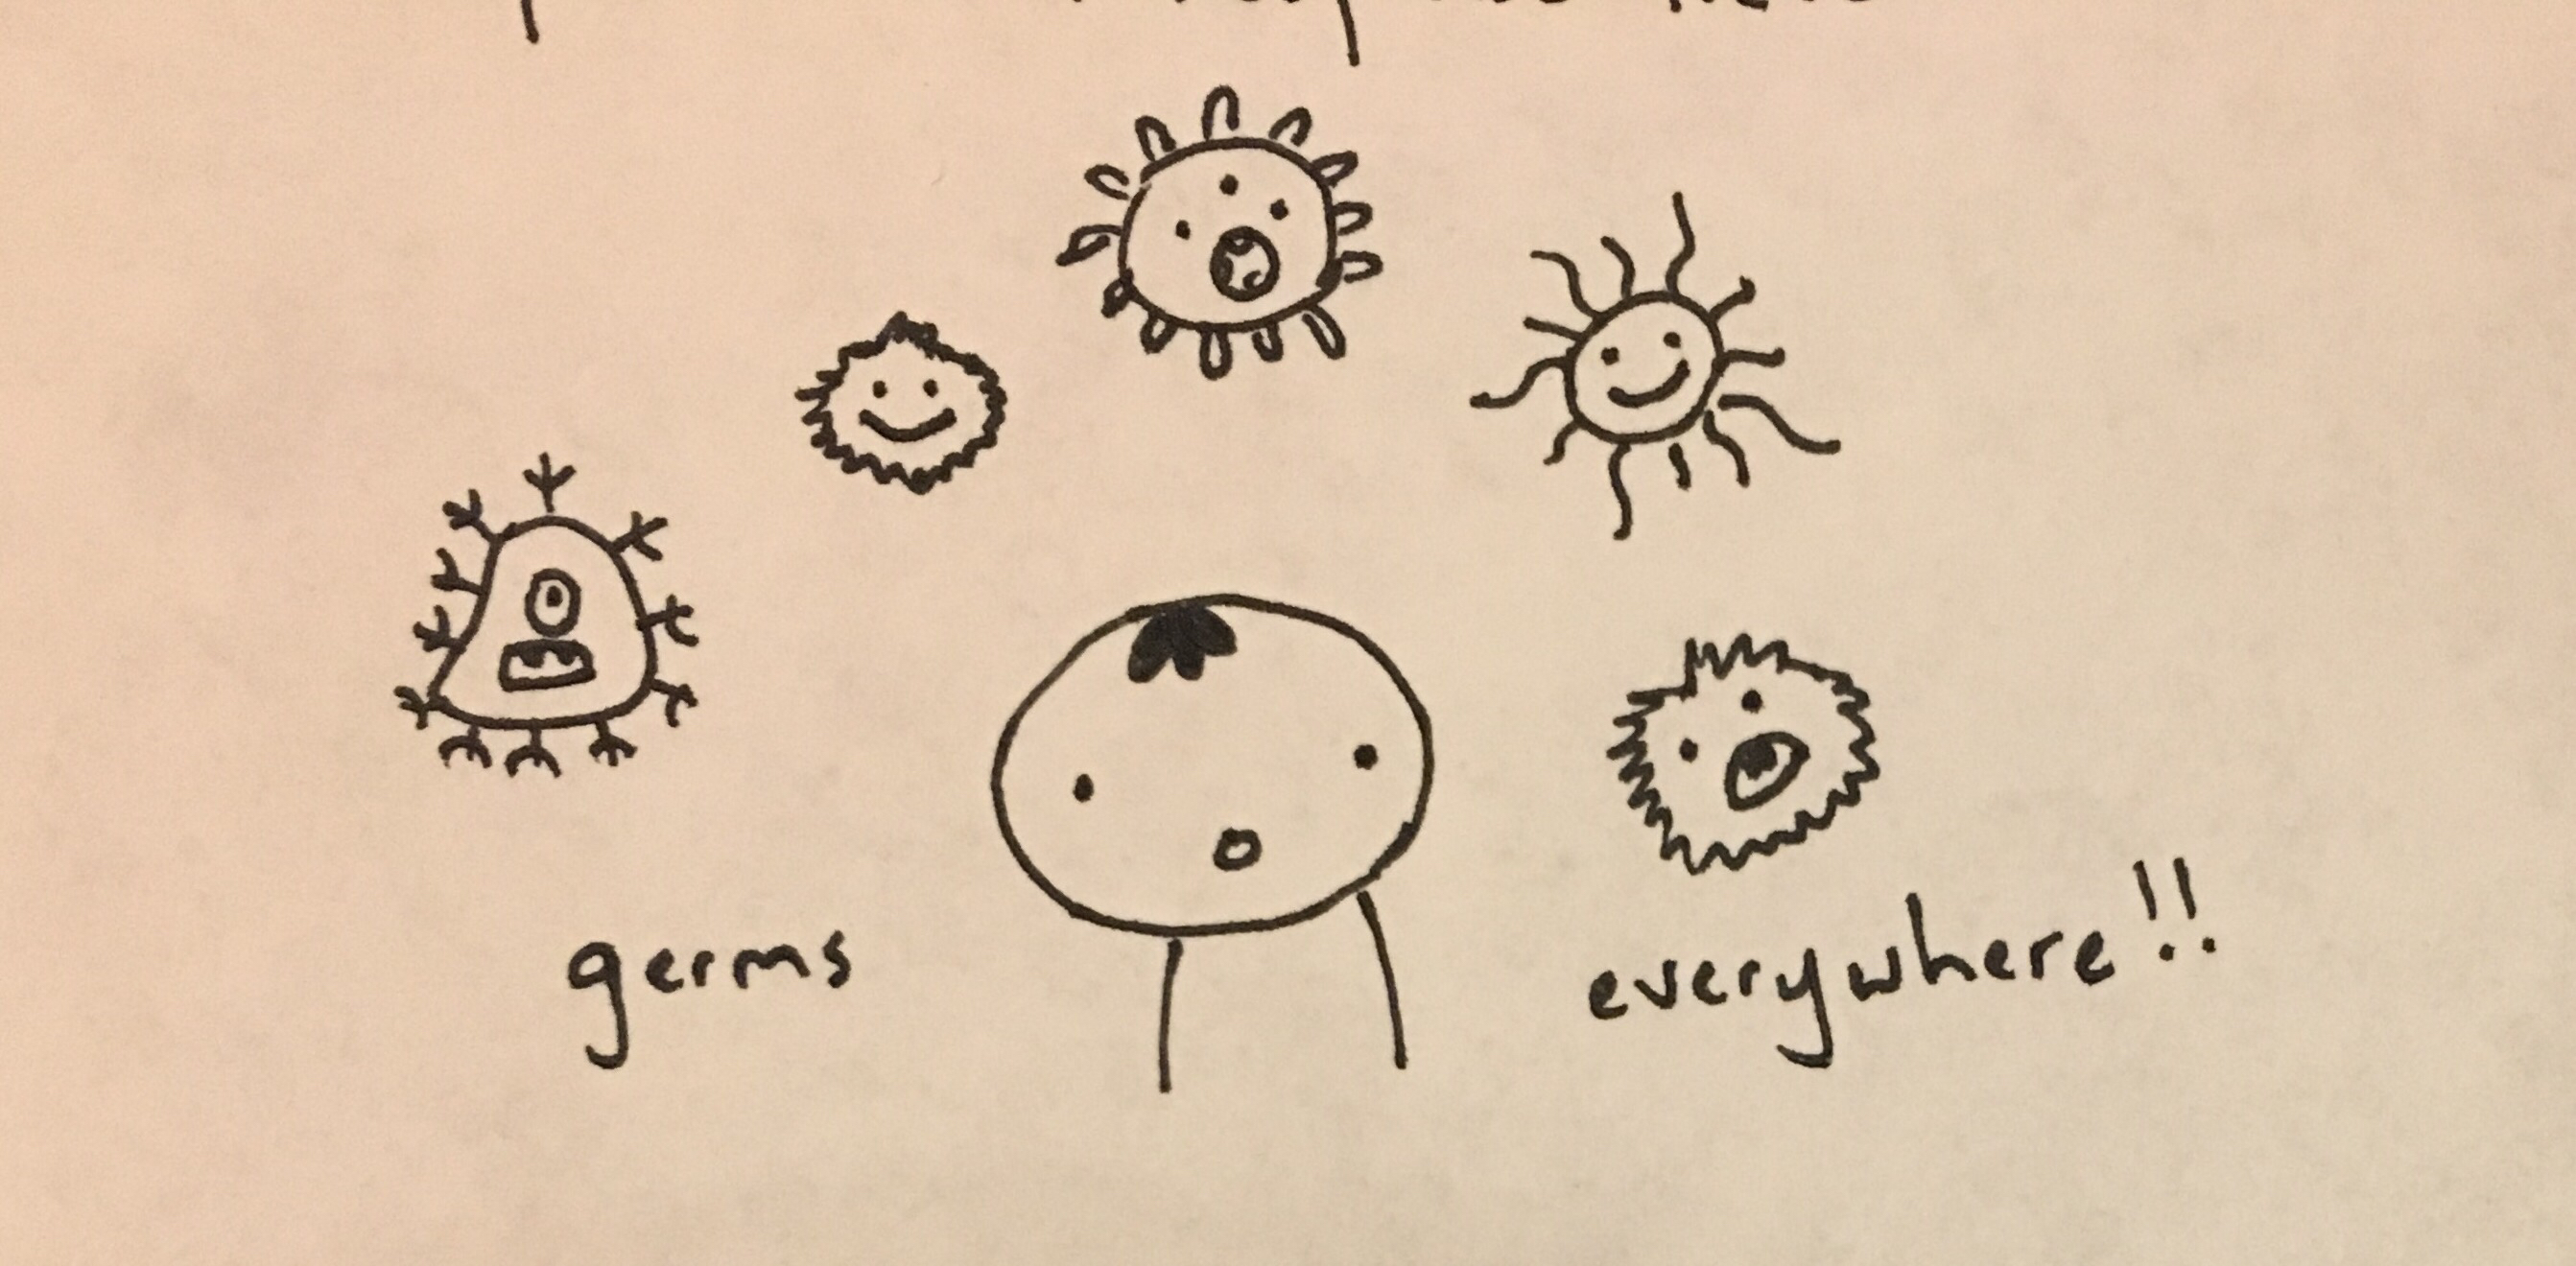 germs everywhere!!